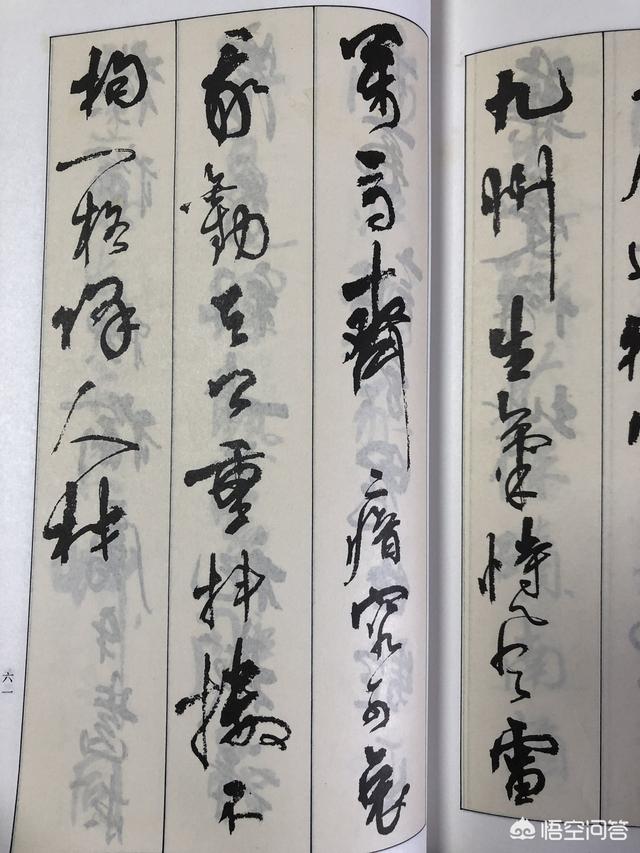 九州生氣恃風雷
萬馬齊瘖究可哀
我勸天公重抖擻不
拘一格降人材
六一
悟空问答